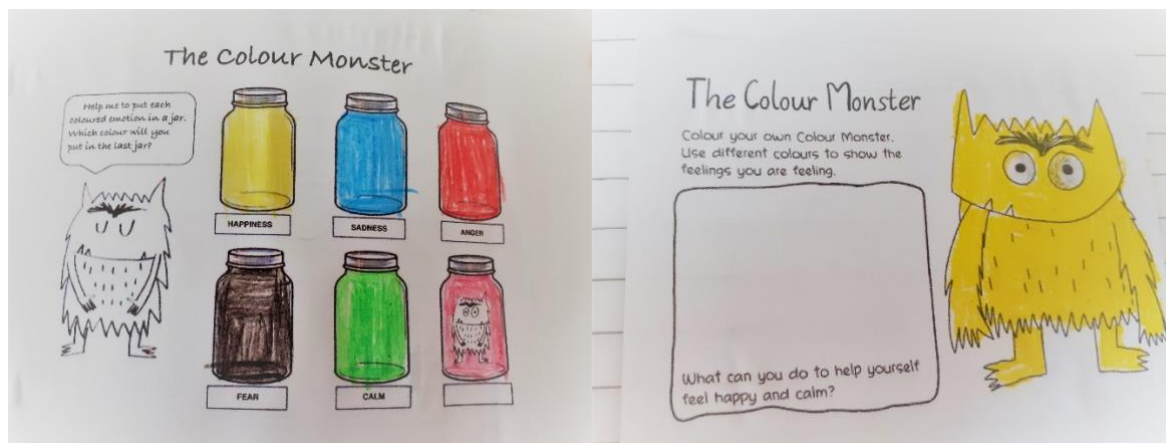 The Colour Monster
Help me to put each
coloured emotion in a jar.
Which colour will you
put in the last jar?
HAPPINESS
SADNESS
ANGER
FEAR
CALM
The Colour Monster
Colour your own Colour Monster.
Use different colours to show the
feelings you are feeling.
What can you do to help yourself
feel happy and calm?